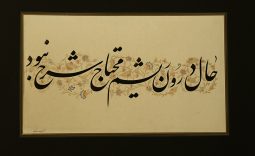 حال درون ریشم محتاج شرح نبود